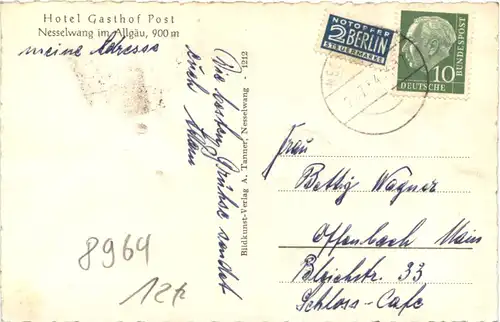 Hotel Gasthof Post
Nesselwang im Allgäu, 900 m
meine Adresse
Die besten Grüße sendet
euch
1212
Bildkunst-Verlag A. Tanner, Nesselwang
NOTOPFER
2 BERLIN
STEUERMARKE
10
DEUTSCHE
BUNDESPOST
Frau
Betty Wagner
Offenbach Main
Bleichstr. 33
Schloss-Cafe
8969
12k